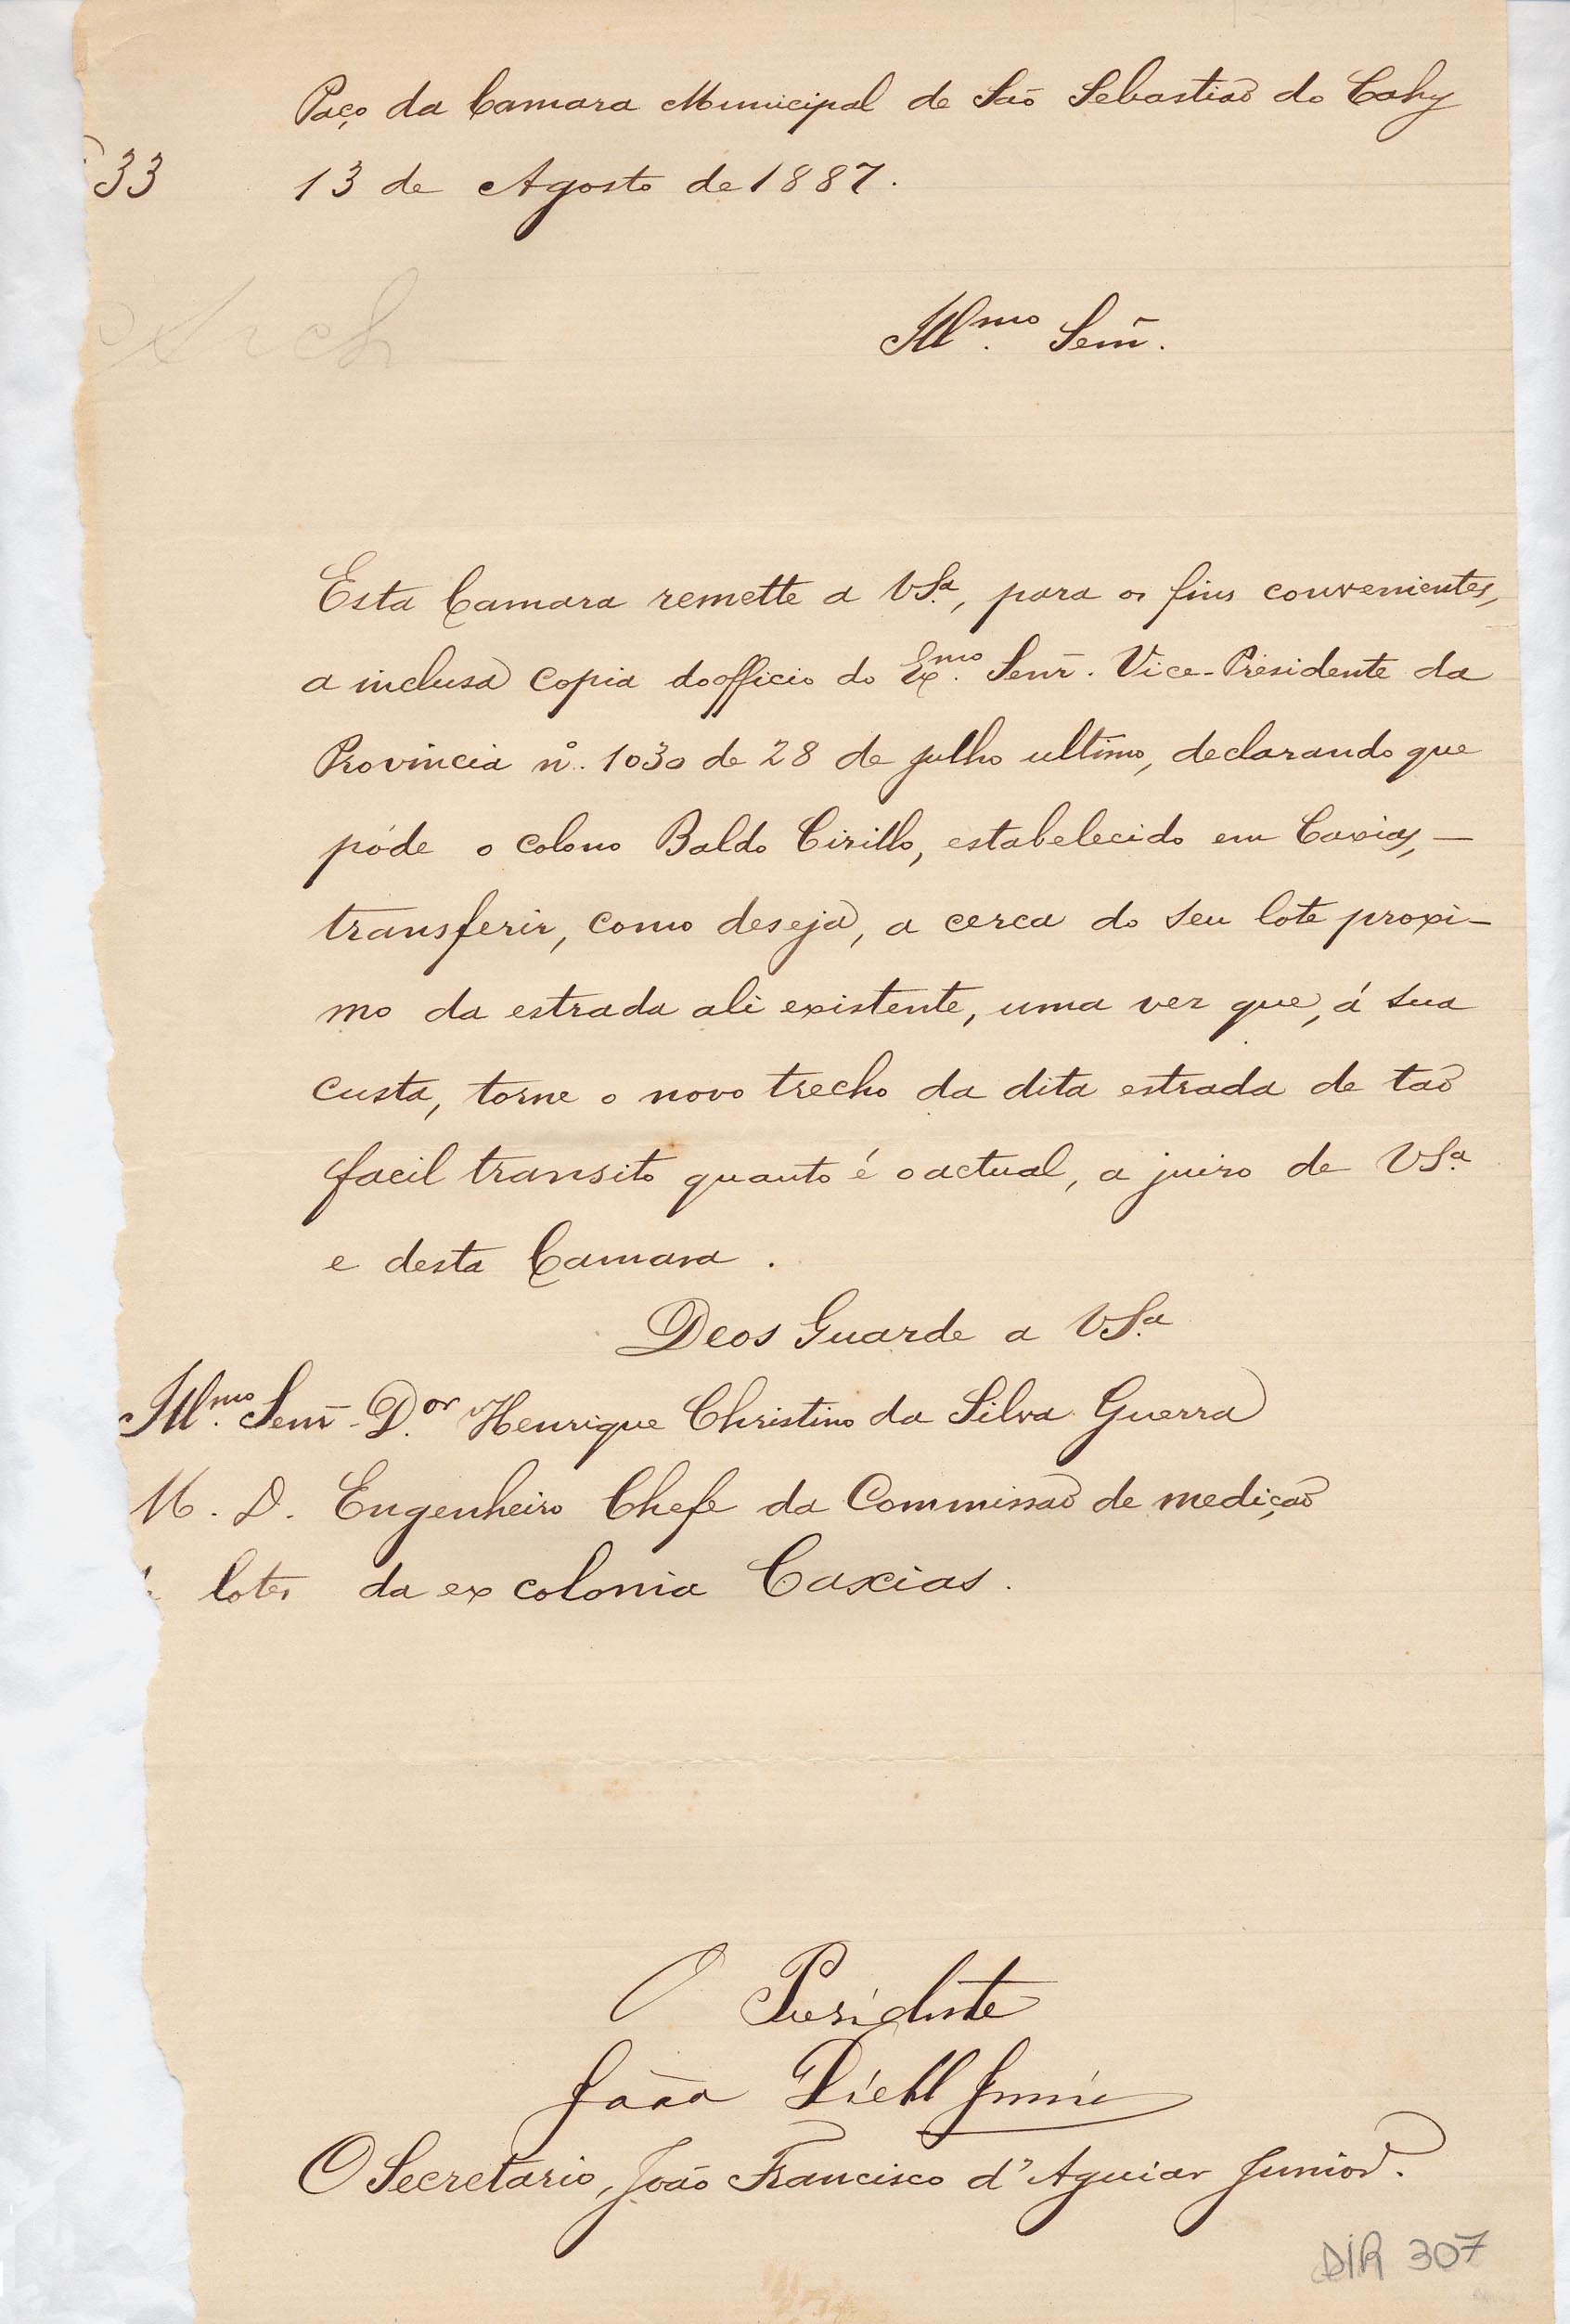 Paço da Camara Municipal de São Sebastião do Cahy
33 13 de Agosto de 1887.
Arch
Illmo. Senr.
Esta Camara remette a VSa., para os fins convenientes,
a inclusa copia do officio do Exmo. Senr. Vice-Presidente da
Provincia nº. 1030 de 28 de julho ultimo, declarando que
póde o colono Baldo Cirillo, estabelecido em Caxias, —
transferir, como deseja, a cerca do seu lote proxi-
mo da estrada ali existente, uma vez que, á sua
custa, torne o novo trecho da dita estrada de tão
facil transito quanto é o actual, a juizo de VSa.
e desta Camara.
Deos Guarde a VSa.
Illmo. Senr. Dor. Henrique Christino da Silva Guerra
M. D. Engenheiro Chefe da Commissão de medição
lotes da ex colonia Caxias.
O Presidente
João Diehl Junior
O Secretario, João Francisco d'Aguiar Junior.
DIR 307